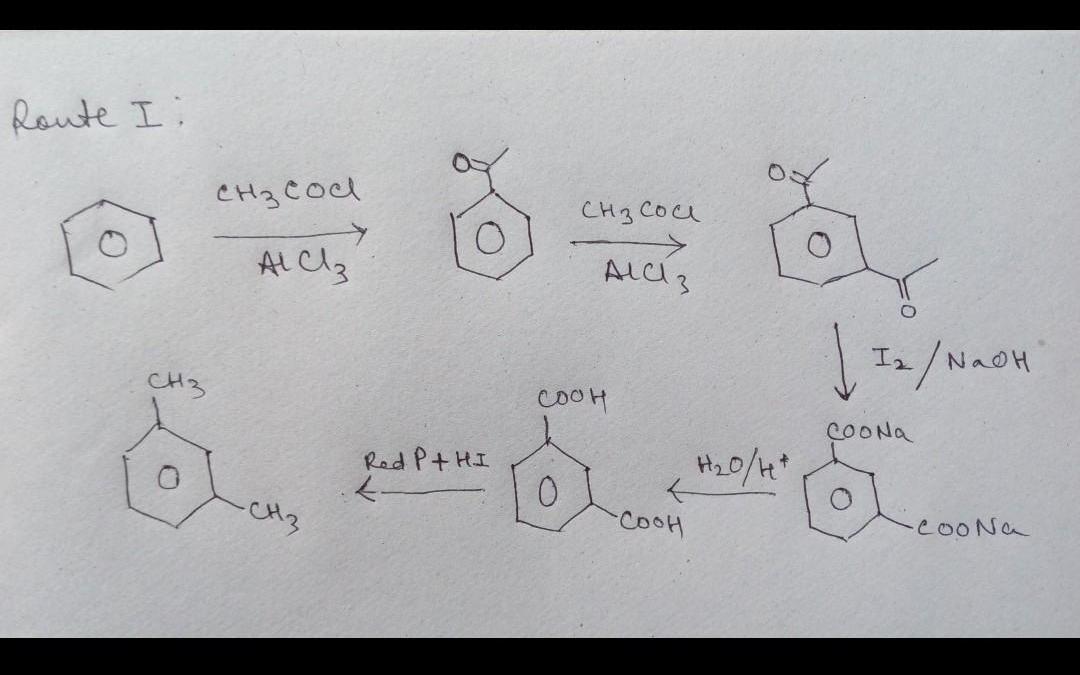 Route I:
CH3COCl
AlCl3
O
CH3COCl
AlCl3
O
O
I2/NaOH
COONa
COONa
H2O/H+
COOH
COOH
Red P + HI
CH3
CH3